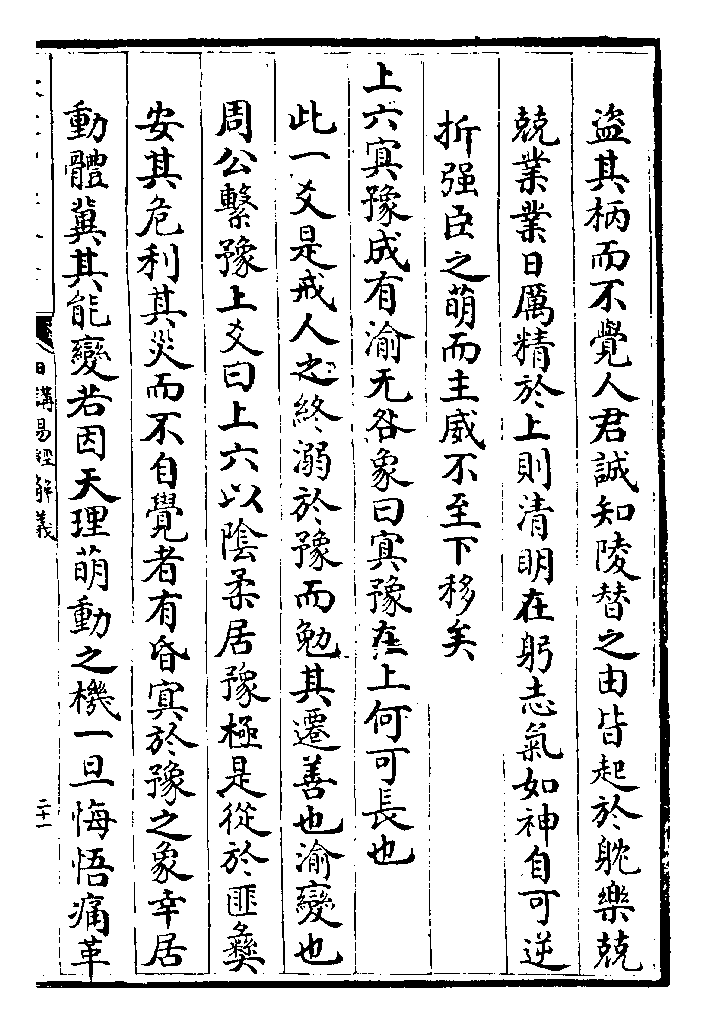 盗其柄而不覺人君誠知陵替之由皆起於躭樂兢
兢業業日厲精於上則清明在躬志氣如神自可逆
折强臣之萌而主威不至下移矣
上六冥豫成有渝无咎象曰冥豫在上何可長也
此一爻是戒人之終溺於豫而勉其遷善也渝變也
周公繫豫上爻曰上六以陰柔居豫極是從於匪彝
安其危利其災而不自覺者有昏冥於豫之象幸居
動體冀其能變若因天理萌動之機一旦悔悟痛革
日講易經解義
二十一